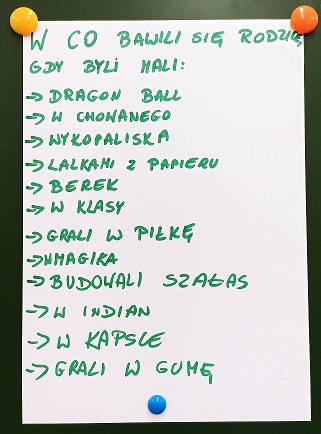 W CO BAWILI SIĘ RODZIC
GDY BYLI MALI:
→ DRAGON BALL
→ W CHOWANEGO
→ WYKOPALISKA
→ LALKAMI Z PAPIERU
→ BEREK
→ W KLASY
→ GRALI W PIŁKĘ
→ WMAGIKA
→ BUDOWALI SZAŁAS
→ W INDIAN
→ W KAPSLE
→ GRALI W GUMĘ